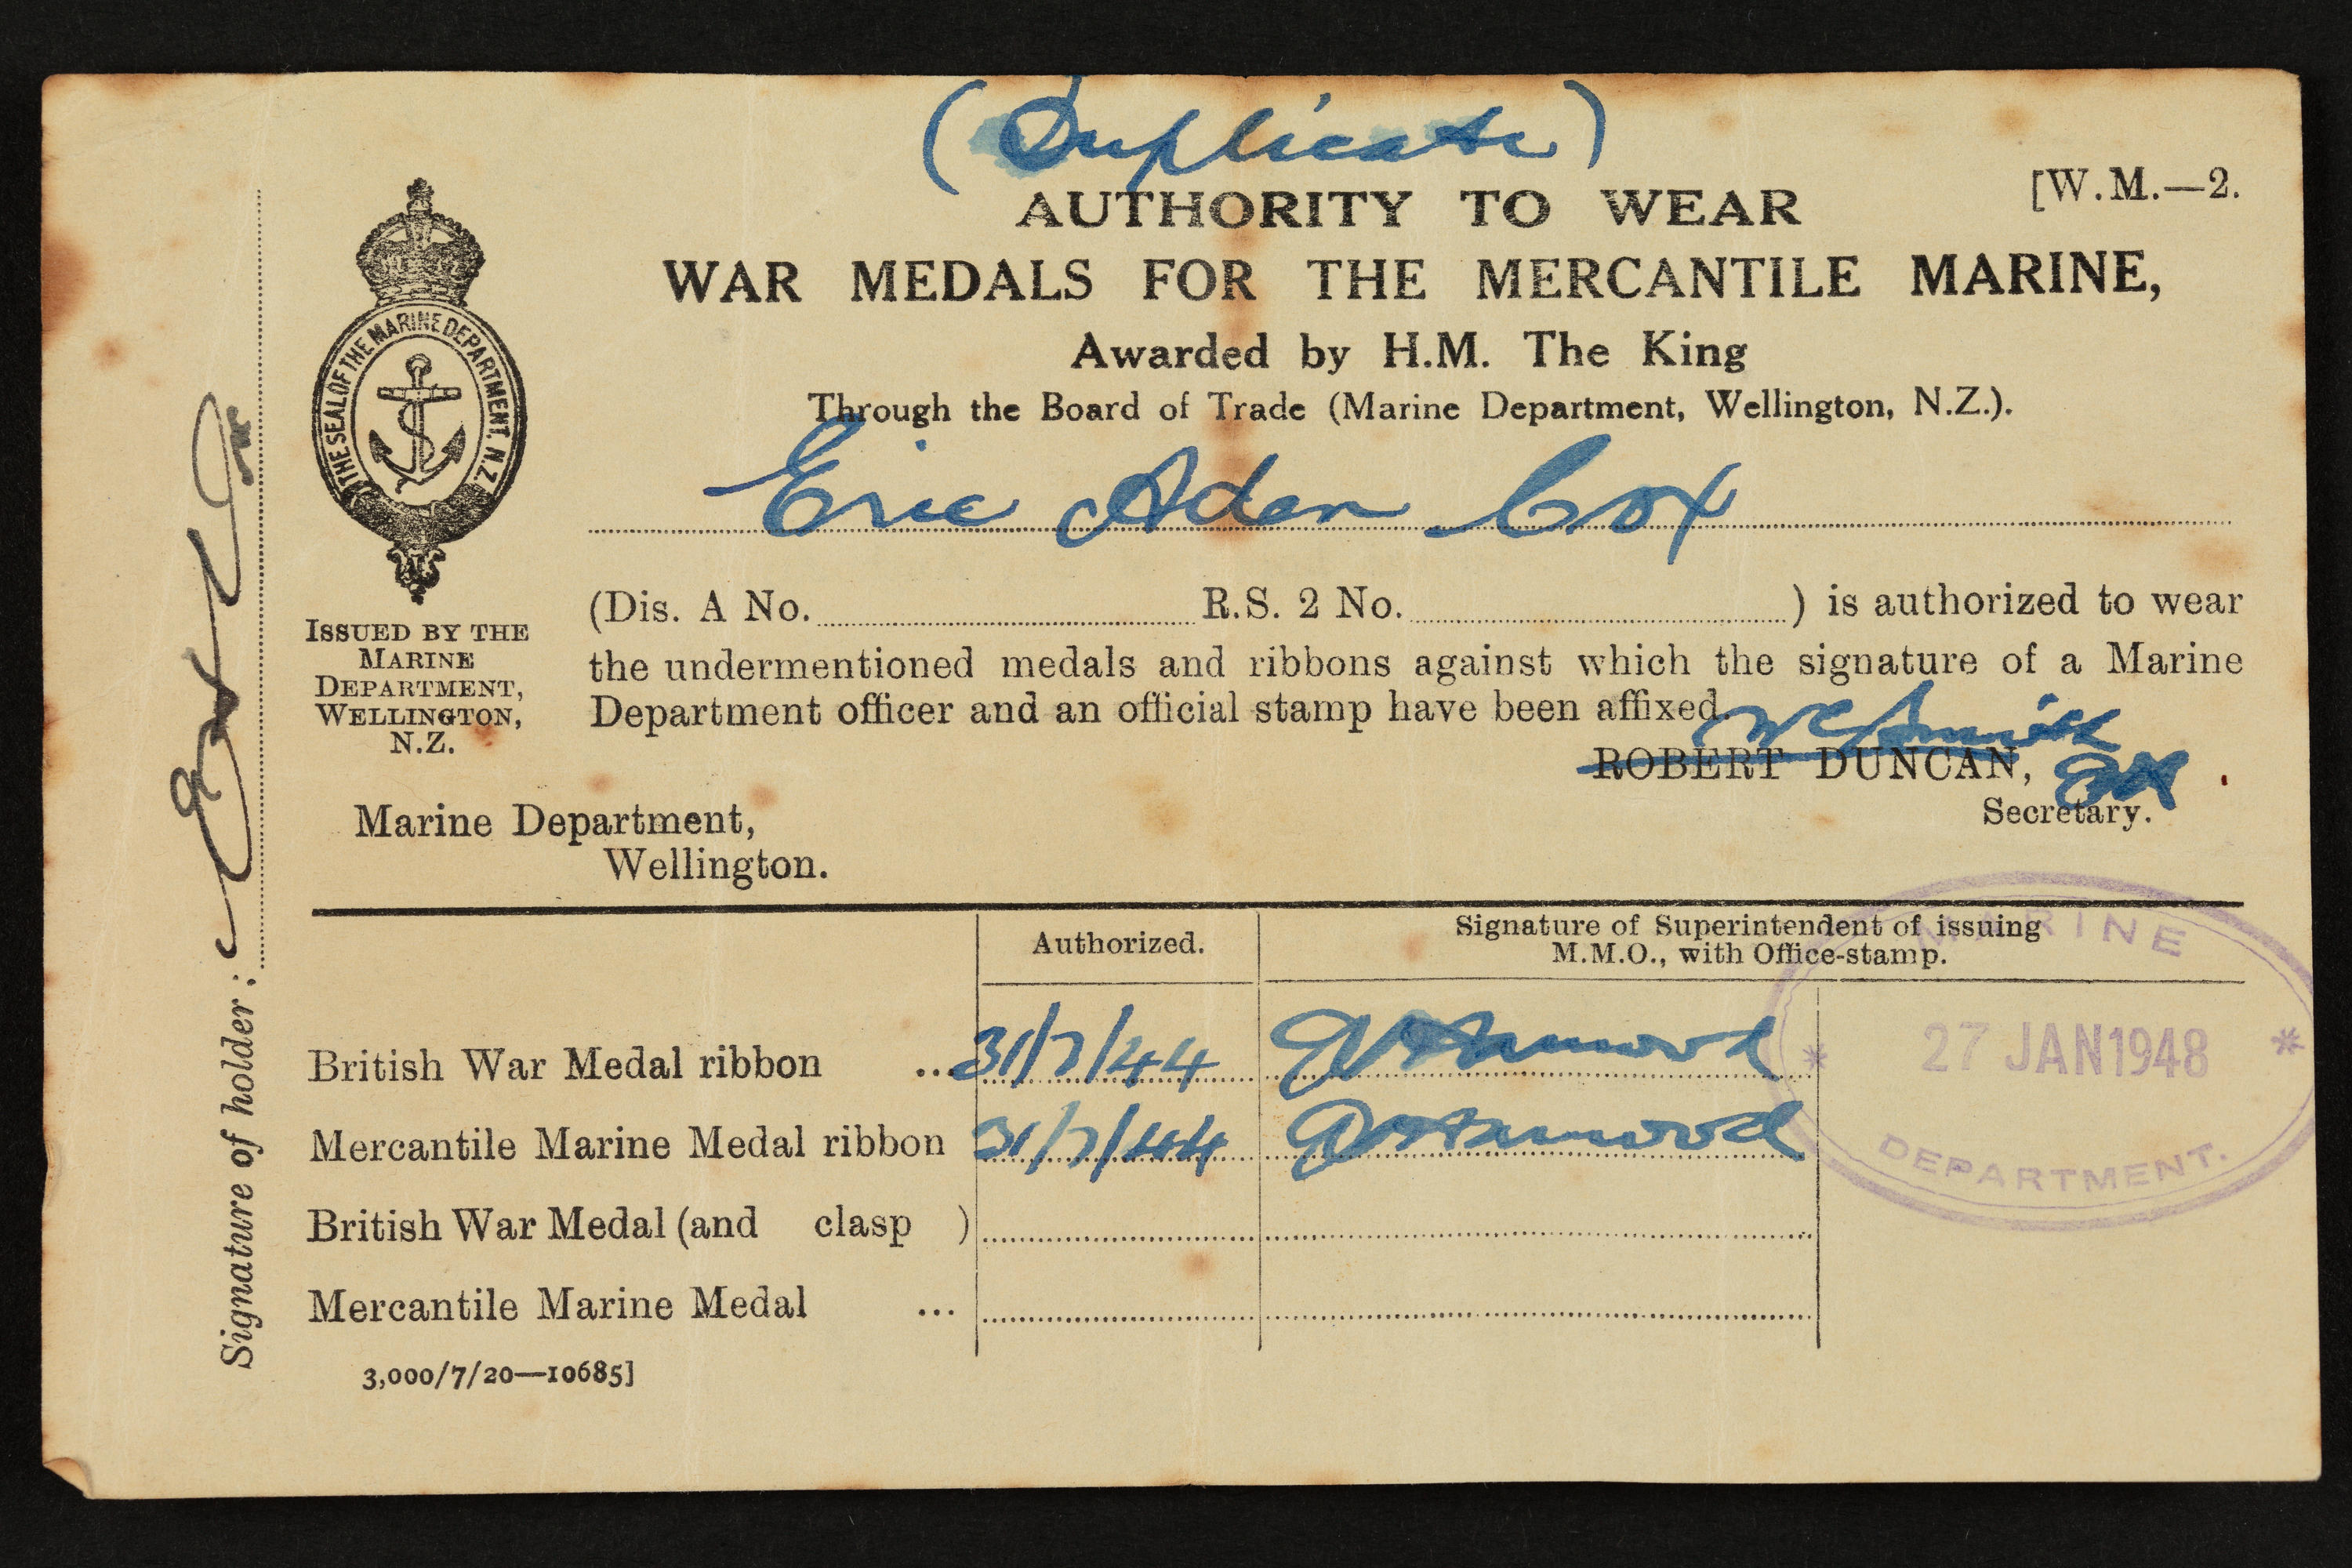 (Duplicate)
[W.M.—2.
AUTHORITY TO WEAR
WAR MEDALS FOR THE MERCANTILE MARINE,
Awarded by H.M. The King
Through the Board of Trade (Marine Department, Wellington, N.Z.).
THE SEAL OF THE MARINE DEPARTMENT. N.Z.
ISSUED BY THE
MARINE
DEPARTMENT,
WELLINGTON,
N.Z.
Eric Aden Cox
(Dis. A No. R.S. 2 No. ) is authorized to wear
the undermentioned medals and ribbons against which the signature of a Marine
Department officer and an official stamp have been affixed.
W C Smith
ROBERT DUNCAN,
Secretary.
Marine Department,
Wellington.
Signature of holder:
Authorized.
Signature of Superintendent of issuing
M.M.O., with Office-stamp.
British War Medal ribbon ... 31/7/44
Mercantile Marine Medal ribbon 31/7/44
British War Medal (and clasp )
Mercantile Marine Medal ...
MARINE
* 27 JAN 1948 *
DEPARTMENT.
3,000/7/20—10685]